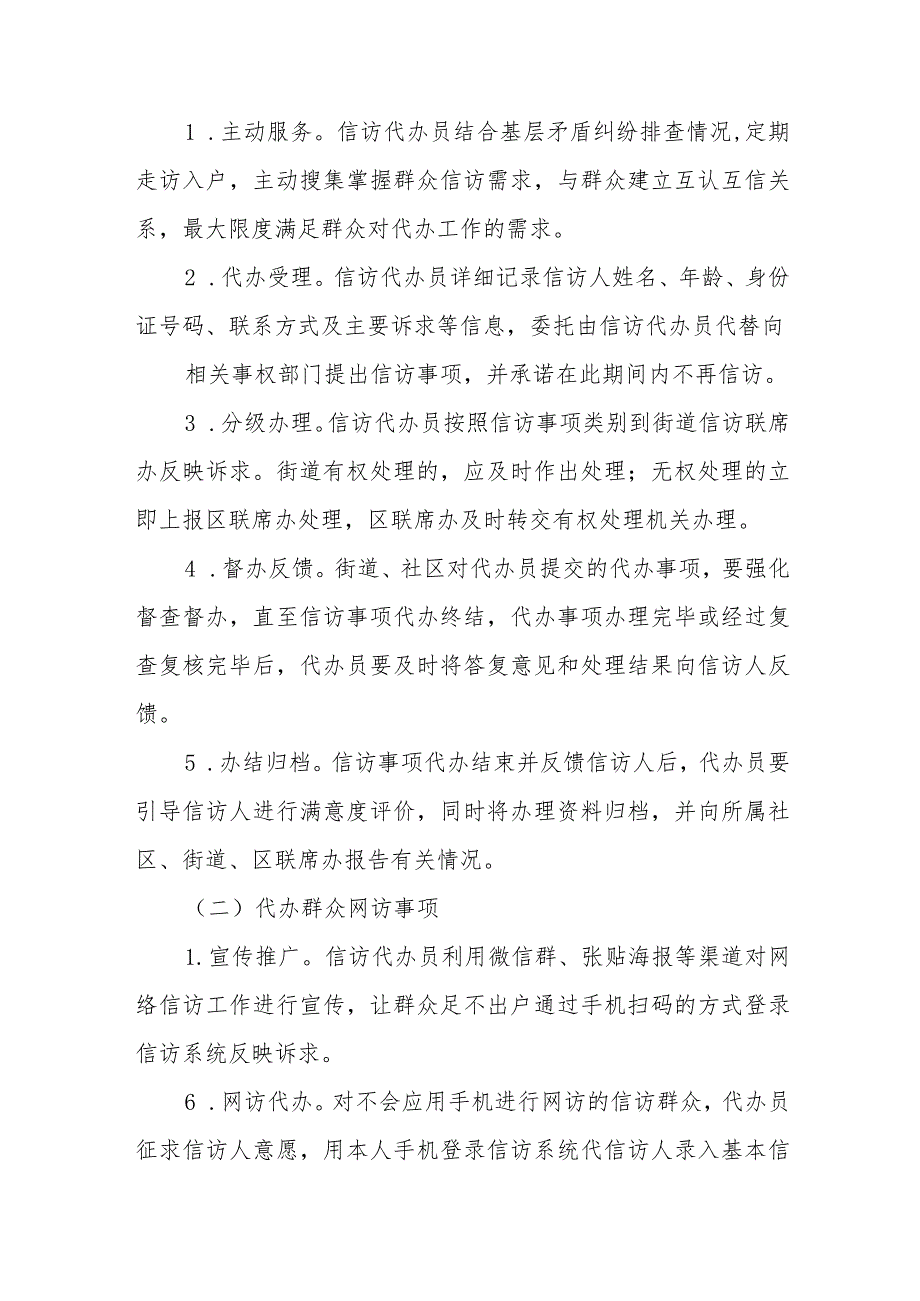 1 .主动服务。信访代办员结合基层矛盾纠纷排查情况,定期
走访入户，主动搜集掌握群众信访需求，与群众建立互认互信关
系，最大限度满足群众对代办工作的需求。
2 .代办受理。信访代办员详细记录信访人姓名、年龄、身份
证号码、联系方式及主要诉求等信息，委托由信访代办员代替向
相关事权部门提出信访事项，并承诺在此期间内不再信访。
3 .分级办理。信访代办员按照信访事项类别到街道信访联席
办反映诉求。街道有权处理的，应及时作出处理；无权处理的立
即上报区联席办处理，区联席办及时转交有权处理机关办理。
4 .督办反馈。街道、社区对代办员提交的代办事项，要强化
督查督办，直至信访事项代办终结，代办事项办理完毕或经过复
查复核完毕后，代办员要及时将答复意见和处理结果向信访人反
馈。
5 .办结归档。信访事项代办结束并反馈信访人后，代办员要
引导信访人进行满意度评价，同时将办理资料归档，并向所属社
区、街道、区联席办报告有关情况。
（二）代办群众网访事项
1.宣传推广。信访代办员利用微信群、张贴海报等渠道对网
络信访工作进行宣传，让群众足不出户通过手机扫码的方式登录
信访系统反映诉求。
6 .网访代办。对不会应用手机进行网访的信访群众，代办员
征求信访人意愿，用本人手机登录信访系统代信访人录入基本信